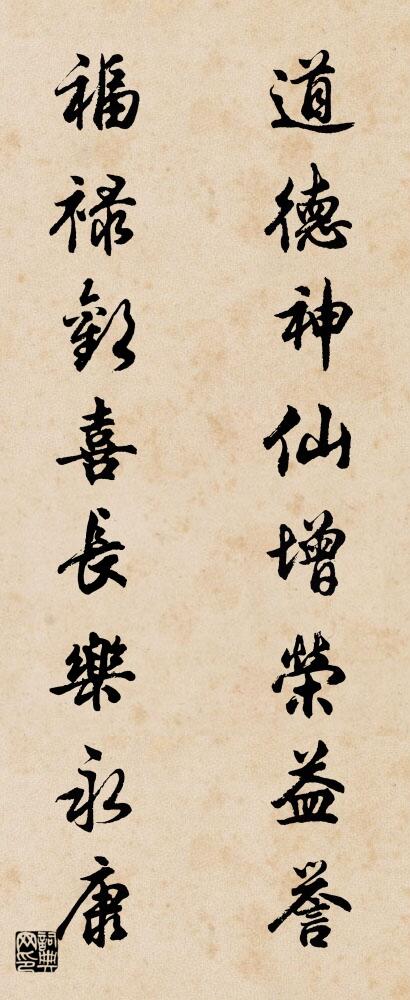 道德神仙增榮益譽
福祿歡喜長樂永康
詞典網印